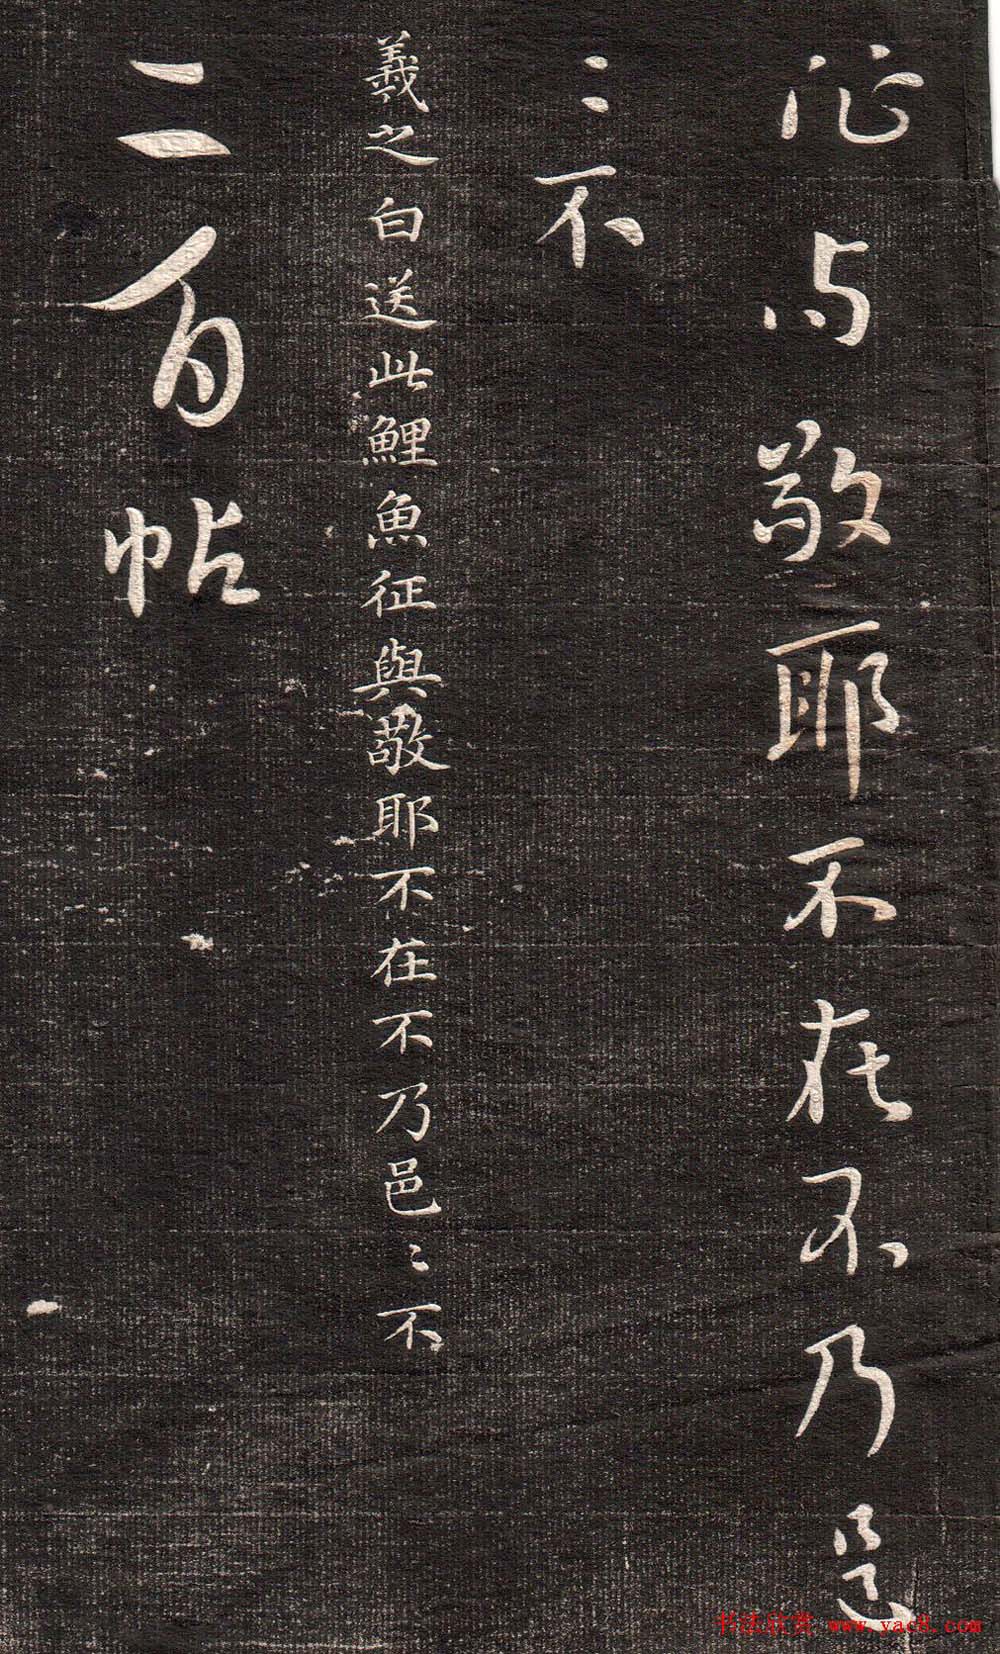 征与敬耶不在不乃邑
〻不
羲之白送此鯉魚征與敬耶不在不乃邑〻不
二百帖
书法欣赏 www.yac8.com